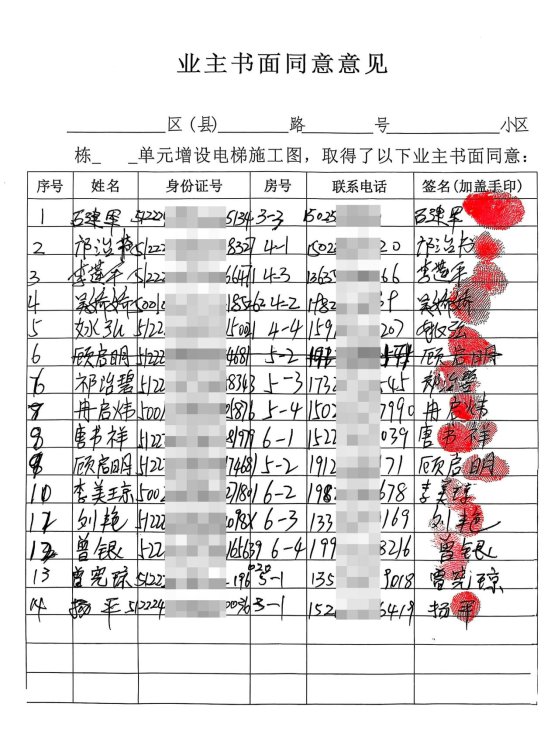 业主书面同意意见
区(县) 路 号 小区
栋 单元增设电梯施工图，取得了以下业主书面同意：
序号 姓名 身份证号 房号 联系电话 签名(加盖手印)
1 石建军 51222 5134 3-3 15025 石建军
2 祁治 51222 8327 4-1 1502 20 祁治
3 李莲平 51222 6647 4-3 13635 66 李莲平
4 吴娇娇 50010 4-2 1782 吴娇娇
5 5122 1500 4-4 1591 207
6 顾启明 51222 4681 5-2 顾启明
6 祁治碧 5122 18343 5-3 1732 45 祁治碧
7 冉启炜 5001 1876 5-4 1502 7990 冉启炜
8 唐书祥 5122 8197 6-1 1522 039 唐书祥
9 顾启明 5122 17468 5-2 1912 171 顾启明
10 李美琼 5002 2718 6-2 198 678 李美琼
刘艳 51222 098X 6-3 133 169 刘艳
12 曾银 522 6-4 199 8216 曾银
13 曾宪琼 51222 196 5-1 135 9018 曾宪琼
14 杨平 512224 3-1 152 6419 杨平